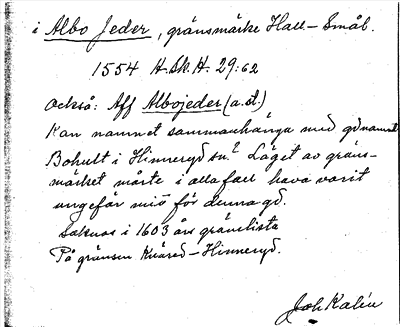 i Albo Jeder, gränsmärke Hall.- Smål.
1554 H.Sk.H. 29:62
också: Aff Albojeder (a.st.)
Kan namnet sammanhänga med gdnamnet
Bohult i Hinneryd sn.? Läget av gräns-
märket måste i alla fall hava varit
ungefär mitt för denna gd.
Saknas i 1603 års gränslista
På gränsen Knäred-Hinneryd.
Joh Kalén